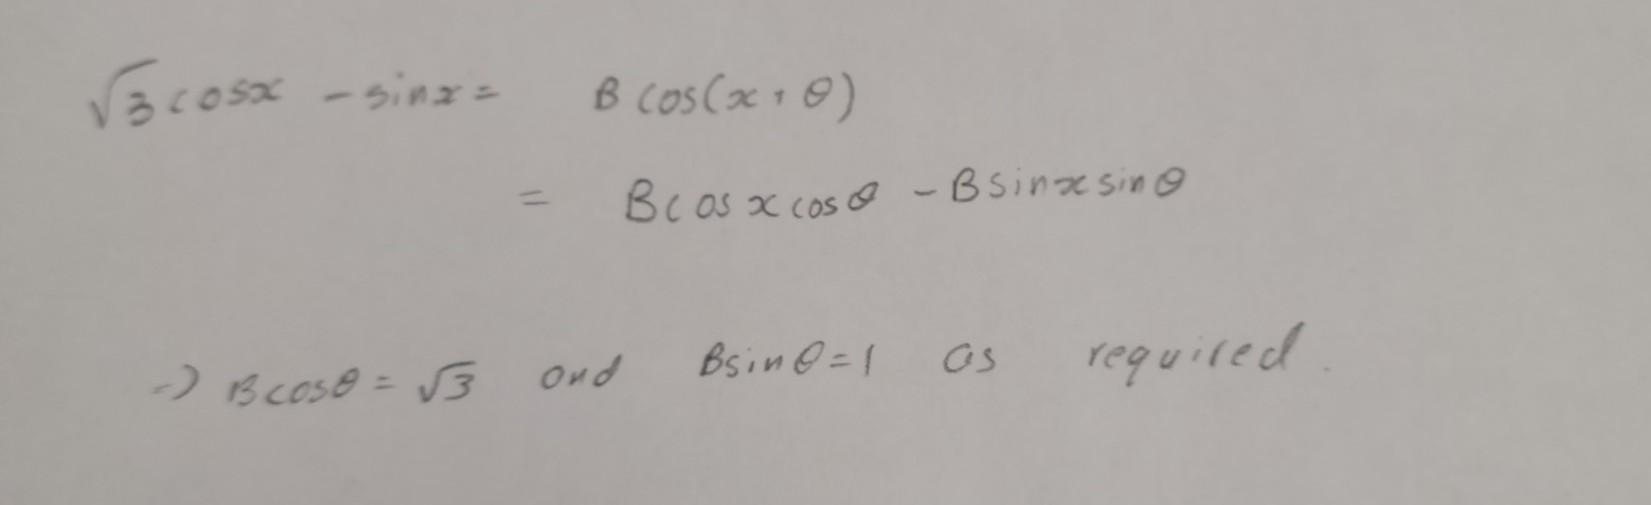 √3 cosx - sinx = B cos(x + θ)
= B cos x cos θ - B sin x sin θ
-> B cos θ = √3 and B sin θ = 1 as required.